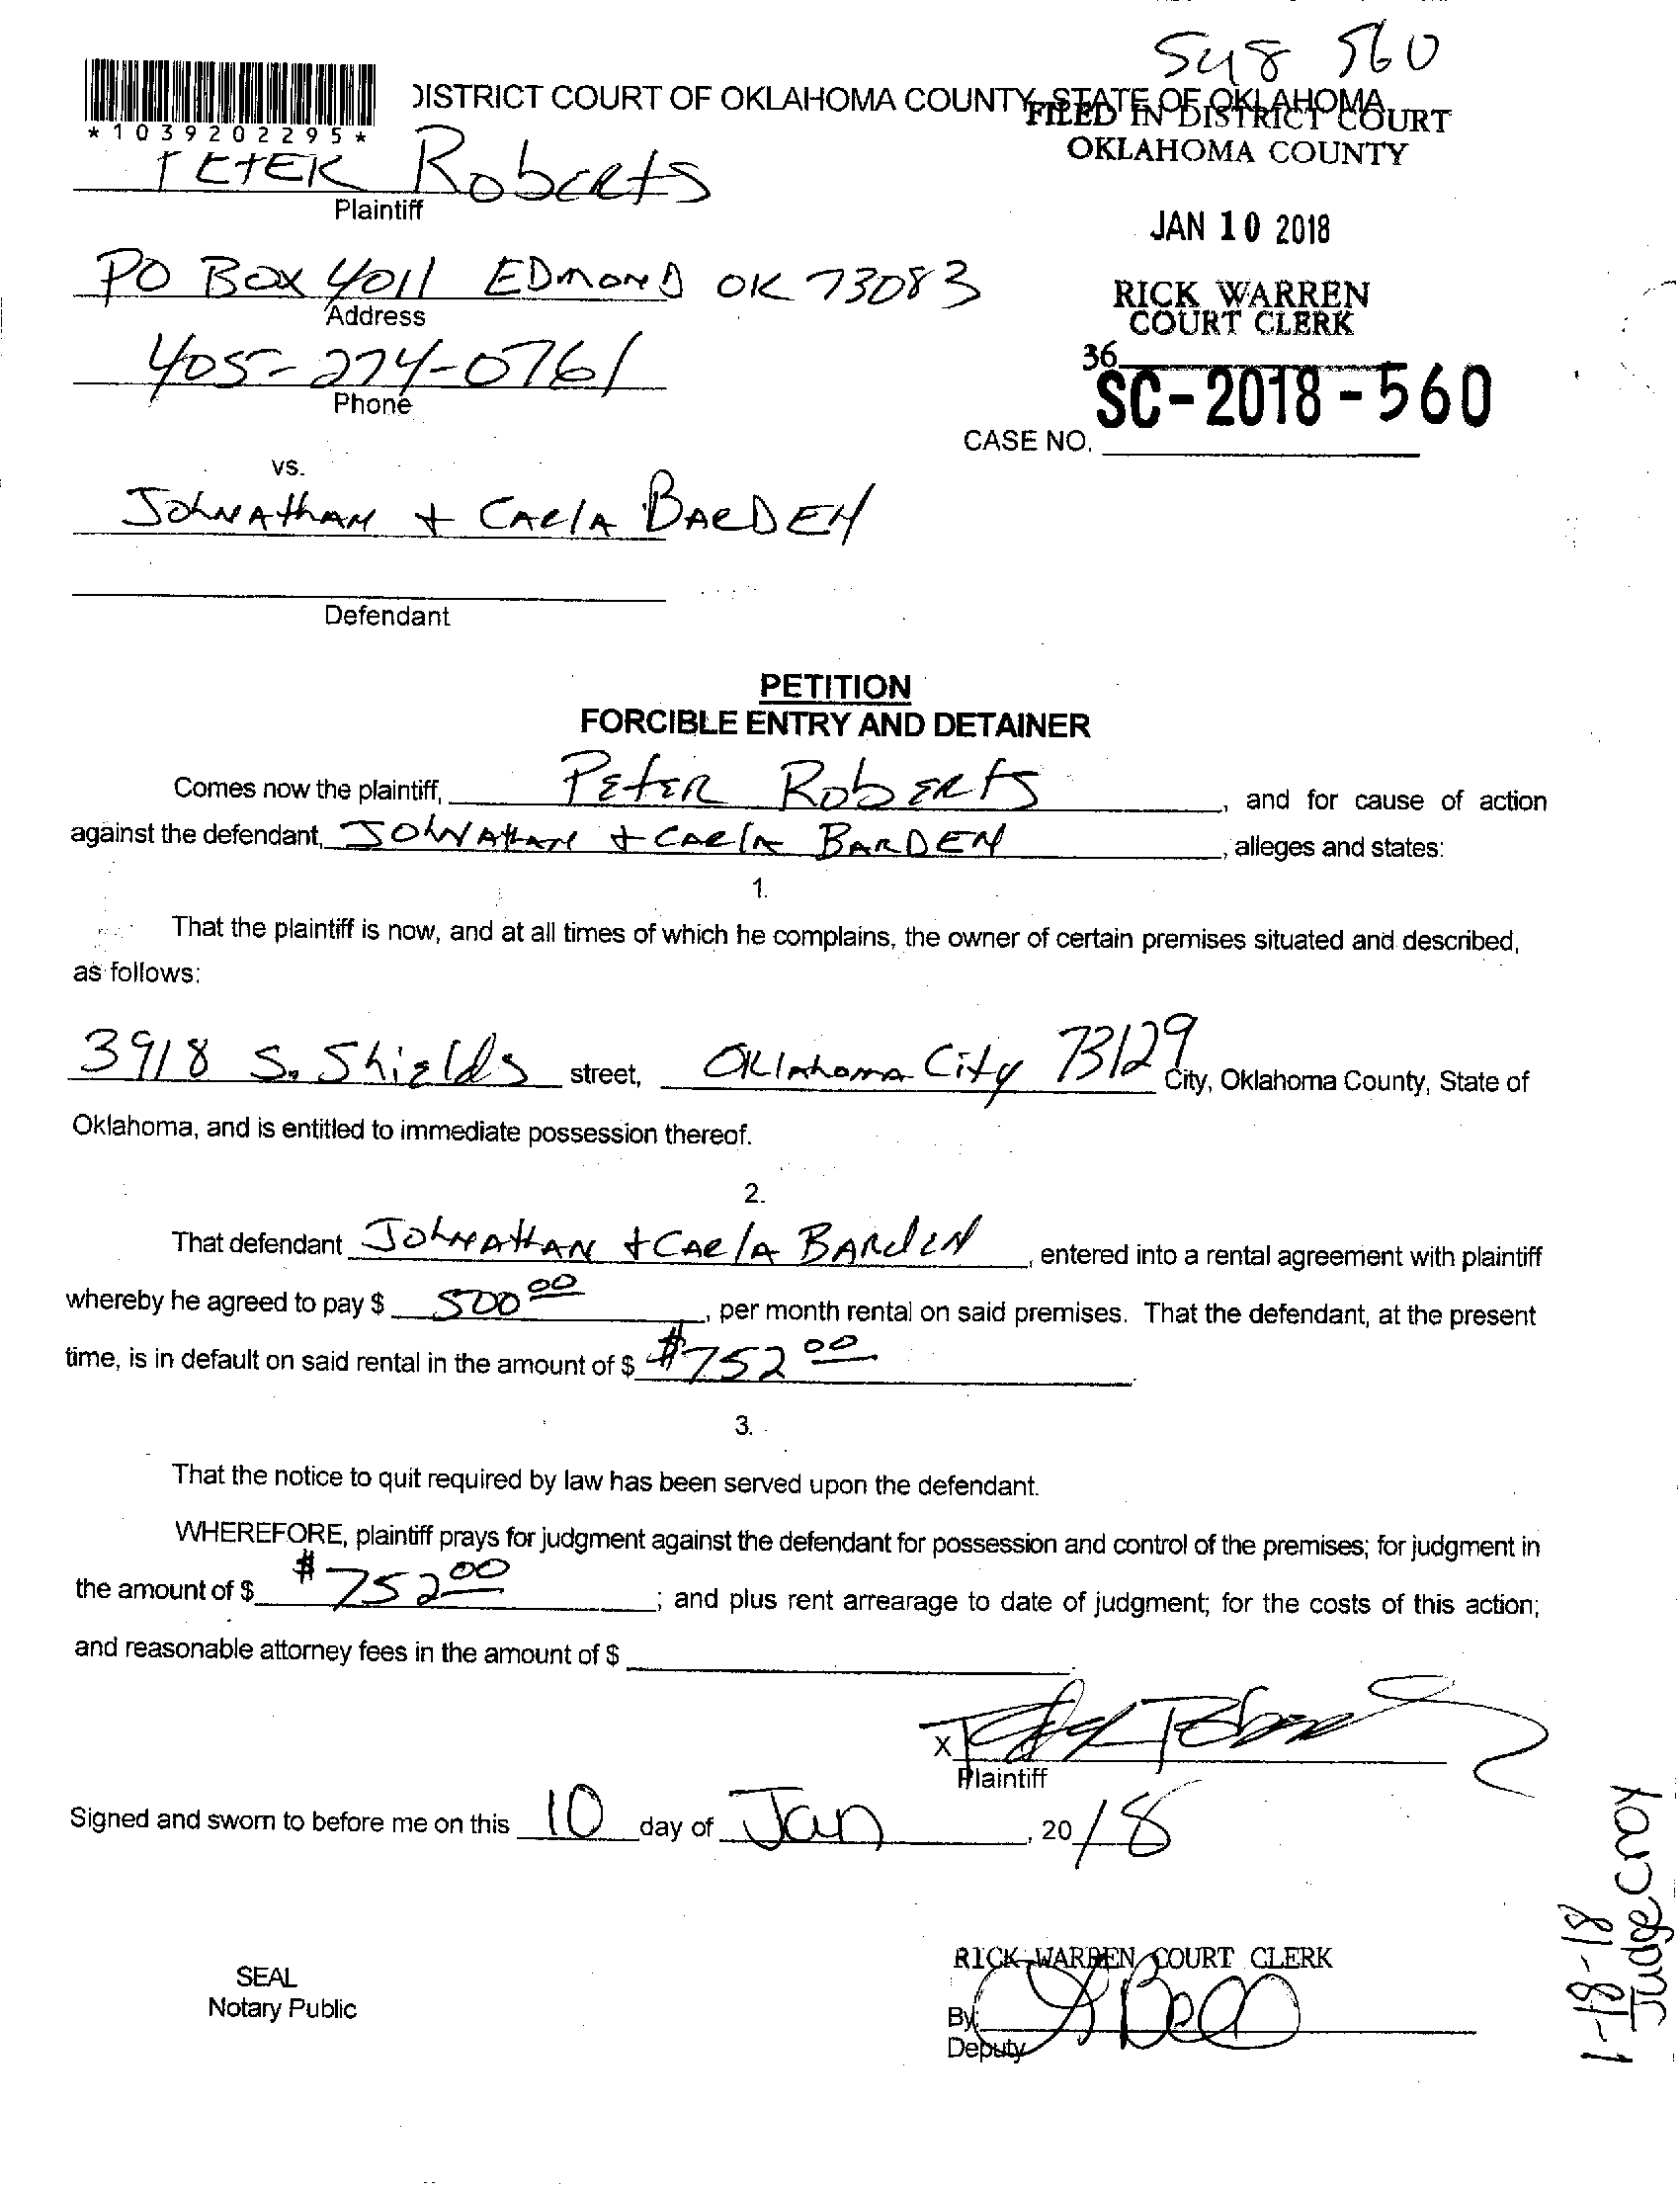 548 560
*1039202295*
DISTRICT COURT OF OKLAHOMA COUNTY, STATE OF OKLAHOMA
FILED IN DISTRICT COURT
OKLAHOMA COUNTY
PETER Roberts
Plaintiff
JAN 10 2018
PO BOX 4011 EDMOND OK 73083
Address
RICK WARREN
COURT CLERK
405-274-0761
Phone
36
SC-2018-560
CASE NO.
vs.
JOHNAthAN + CARlA BARDEN
Defendant
PETITION
FORCIBLE ENTRY AND DETAINER
Comes now the plaintiff, PEtER RobERts, and for cause of action
against the defendant, JOHNAthAN + CARlA BARDEN, alleges and states:
1.
That the plaintiff is now, and at all times of which he complains, the owner of certain premises situated and described,
as follows:
3918 S. Shields street, Oklahoma City 73129 City, Oklahoma County, State of
Oklahoma, and is entitled to immediate possession thereof.
2.
That defendant JOHNAtHAN + CARlA BARdEN, entered into a rental agreement with plaintiff
whereby he agreed to pay $ 500 00, per month rental on said premises. That the defendant, at the present
time, is in default on said rental in the amount of $ $752 00.
3.
That the notice to quit required by law has been served upon the defendant.
WHEREFORE, plaintiff prays for judgment against the defendant for possession and control of the premises; for judgment in
the amount of $ $752 00; and plus rent arrearage to date of judgment; for the costs of this action;
and reasonable attorney fees in the amount of $
X
Plaintiff
Signed and sworn to before me on this 10 day of Jan, 2018
RICK WARREN COURT CLERK
SEAL
Notary Public
By:
Deputy
1-18-18
Judge Croy